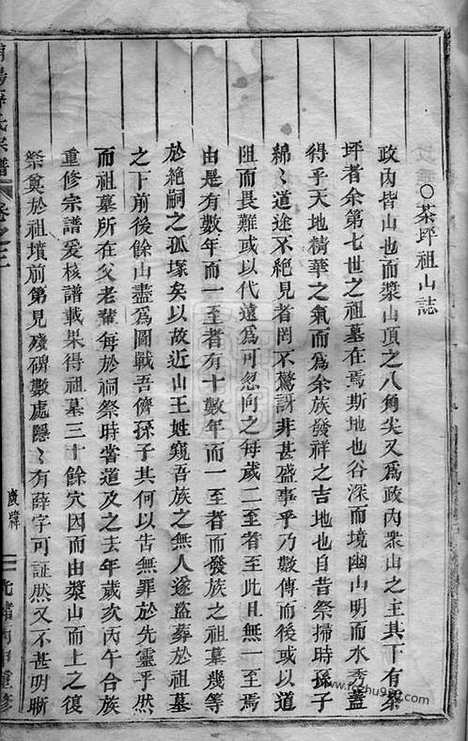 ○茶坪祖山誌
政內皆山也而槳山頂之八角尖又為政內衆山之主其下有茶
坪者余第七世之祖墓在焉斯地也谷深而境幽山明而水秀蓋
得乎天地精華之氣而為余族發祥之吉地也自昔祭掃時孫子
綿〻道途不絕見者罔不驚訝非甚盛事乎乃數傳而後或以道
而畏難或以代遠為可忽向之每歲二至者至此且無一至焉
由是有數年而一至者有十數年而一至者而發族之祖墓幾等
於絕嗣之孤塚矣以故近山王姓窺吾族之無人遂盜葬於祖墓
之下前後餘山盡為圖戰吾儕孫子其何以告無罪於先靈乎然
而祖墓所在父老輩每於祠祭時嘗道及之去年歲次丙午合族
重修宗譜爰核譜載果得祖墓三十餘穴因而由槳山而上之復
祭奠於祖墳前第見殘碑數處隱〻有薛字可証然又不甚明晰
氏宗譜
卷之二
光緒丙申重修